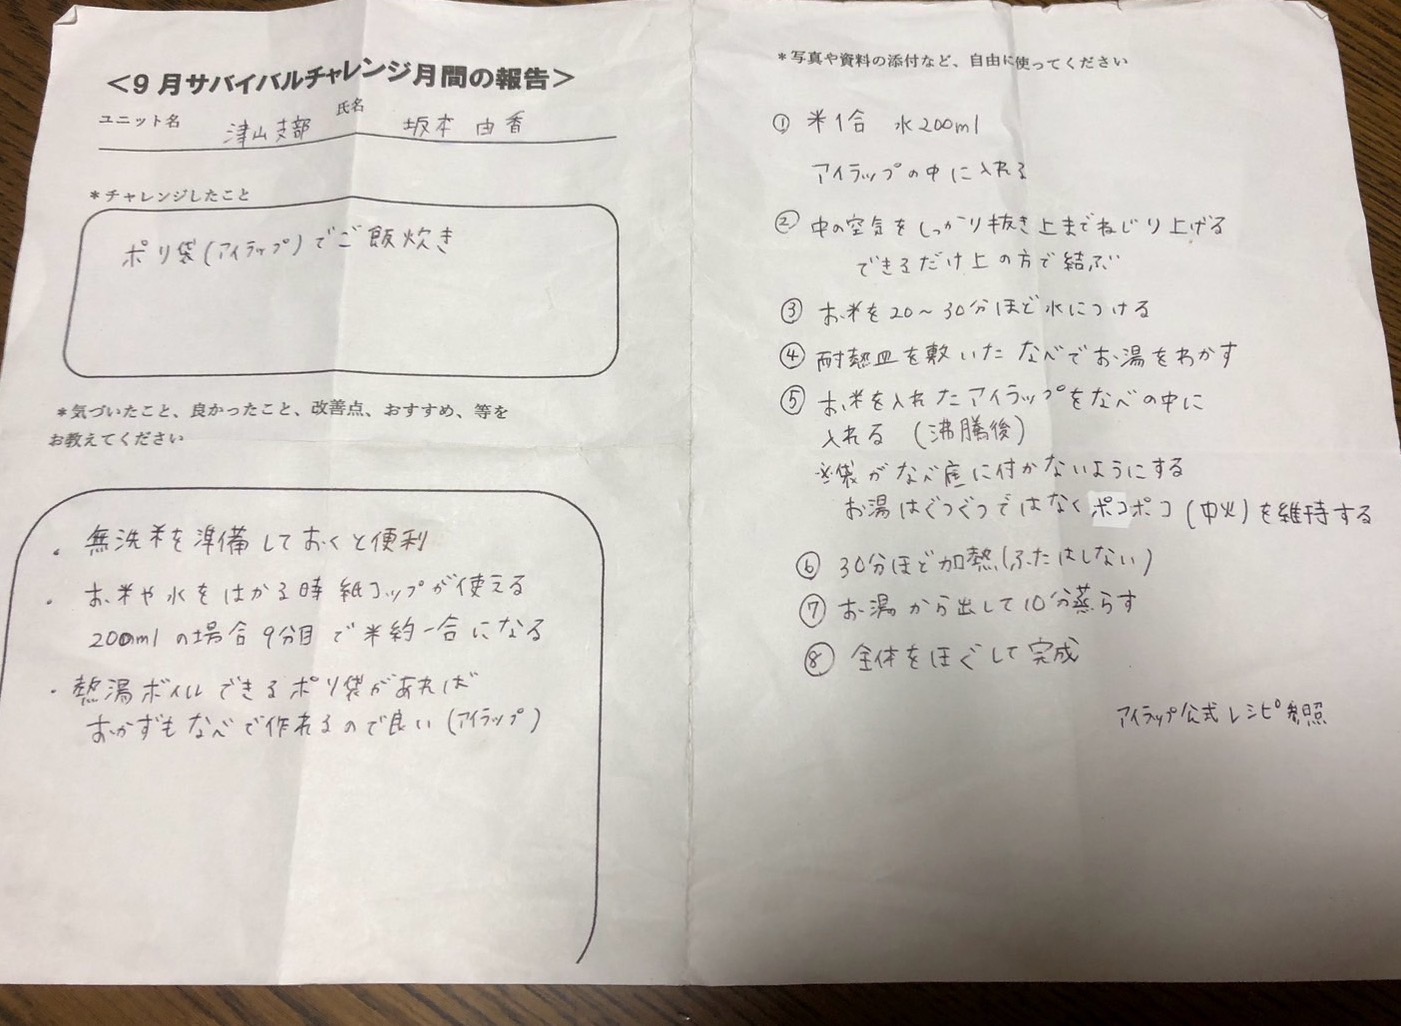 ＜９月サバイバルチャレンジ月間の報告＞
ユニット名 津山支部 氏名 坂本 由香
＊チャレンジしたこと
ポリ袋(アイラップ)でご飯炊き
＊気づいたこと、良かったこと、改善点、おすすめ、等を
お教えてください
・無洗米を準備しておくと便利
・お米や水をはかる時紙コップが使える
200mlの場合9分目で米約一合になる
・熱湯ボイルできるポリ袋があれば
おかずもなべで作れるので良い(アイラップ)
＊写真や資料の添付など、自由に使ってください
① 米1合 水200ml
アイラップの中に入れる
② 中の空気をしっかり抜き上までねじり上げる
できるだけ上の方で結ぶ
③ お米を20～30分ほど水につける
④ 耐熱皿を敷いたなべでお湯をわかす
⑤ お米を入れたアイラップをなべの中に
入れる (沸騰後)
※袋がなべ底に付かないようにする
お湯はぐつぐつではなくポコポコ(中火)を維持する
⑥ 30分ほど加熱(ふたはしない)
⑦ お湯から出して10分蒸らす
⑧ 全体をほぐして完成
アイラップ公式レシピ参照